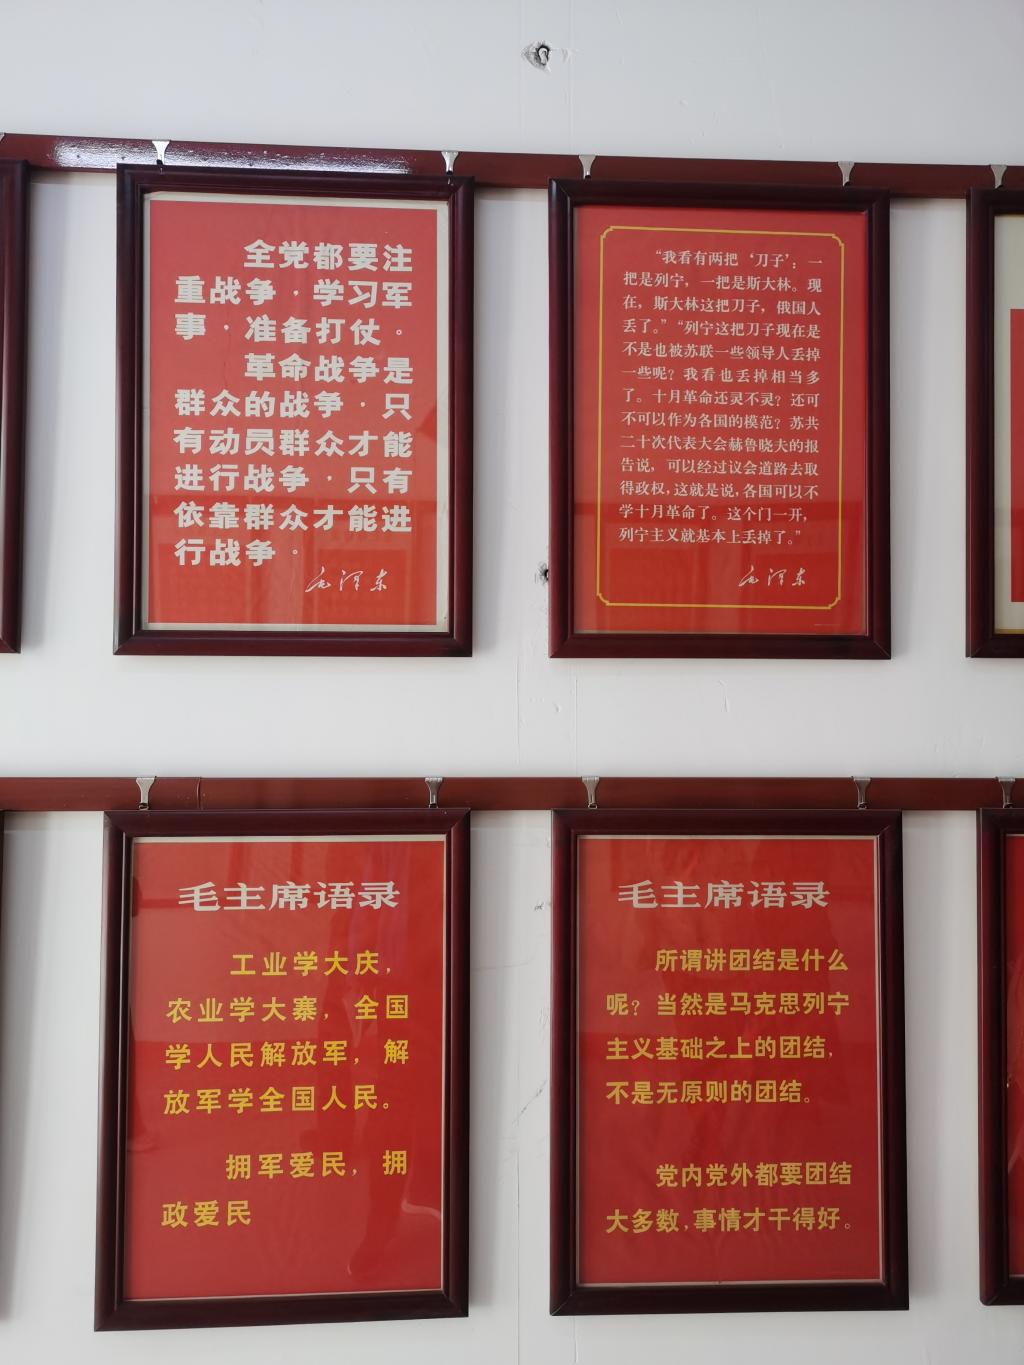 全党都要注
重战争·学习军
事·准备打仗。
革命战争是
群众的战争·只
有动员群众才能
进行战争·只有
依靠群众才能进
行战争。
毛泽东
“我看有两把‘刀子’：一
把是列宁，一把是斯大林。现
在，斯大林这把刀子，俄国人
丢了。”“列宁这把刀子现在是
不是也被苏联一些领导人丢掉
一些呢？我看也丢掉相当多
了。十月革命还灵不灵？还可
不可以作为各国的模范？苏共
二十次代表大会赫鲁晓夫的报
告说，可以经过议会道路去取
得政权，这就是说，各国可以不
学十月革命了。这个门一开，
列宁主义就基本上丢掉了。”
毛泽东
毛主席语录
工业学大庆，
农业学大寨，全国
学人民解放军，解
放军学全国人民。
拥军爱民，拥
政爱民
毛主席语录
所谓讲团结是什么
呢？当然是马克思列宁
主义基础之上的团结，
不是无原则的团结。
党内党外都要团结
大多数，事情才干得好。